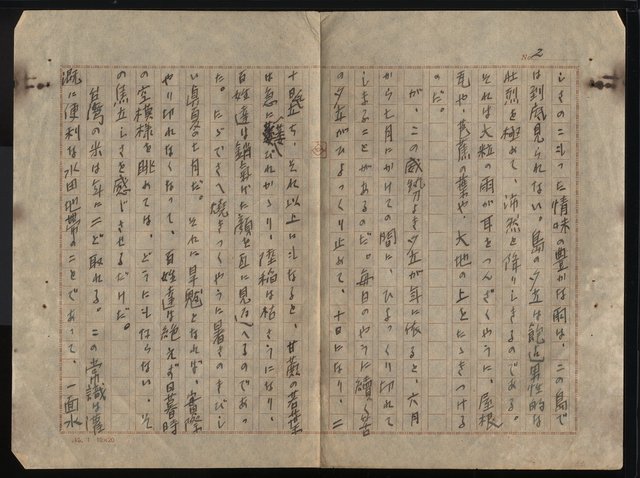 No. 2
しさのこもった情味の豊かな雨は、この島で
は到底見られない。島の夕立は飽迄男性的な
壮烈を極めて、沛然と降りしきるのである。
それは大粒の雨が耳をつんざくやうに、屋根
瓦や、芭蕉の葉や、大地の上をたゝきつける
のだ。
が、この威勢よき夕立が年に依ると、六月
から七月にかけての間に、ひょっくり切れて
しまることがあるのだ。毎日のやうに續く筈
の夕立がひょっくり止めて、十日になり、二
十日と立ち、それ以上にもなると、甘蔗の若葉
は急に萎びれかゝり、陸稲は枯さうになり、
百姓達は銷気た顔を互に見交へるのであっ
た。たゞでさへ焼きつくやうに暑さのきびし
い真夏の七月だ。それに旱魃となれば、實際
やり切れなくなって、百姓達は絶えず日暮時
の空模様を眺めては、どうにもならない、そ
の焦立しさを感じさせるだけだ。
台湾の米は年に二ど取れる。この常識は灌
漑に便利な水田地帯のことであって、一面水
15. 7 10×20